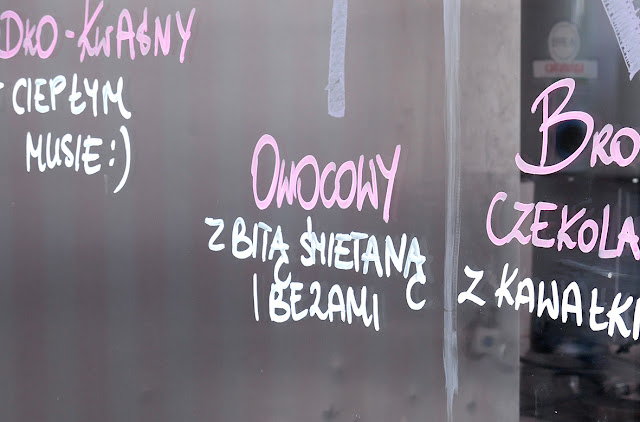 DKO-KWAŚNY
CIEPŁYM
MUSIE:)
OWOCOWY
Z BITĄ ŚMIETANĄ
I BEZAMI
BRO
CZEKOLA
Z KAWAŁKI